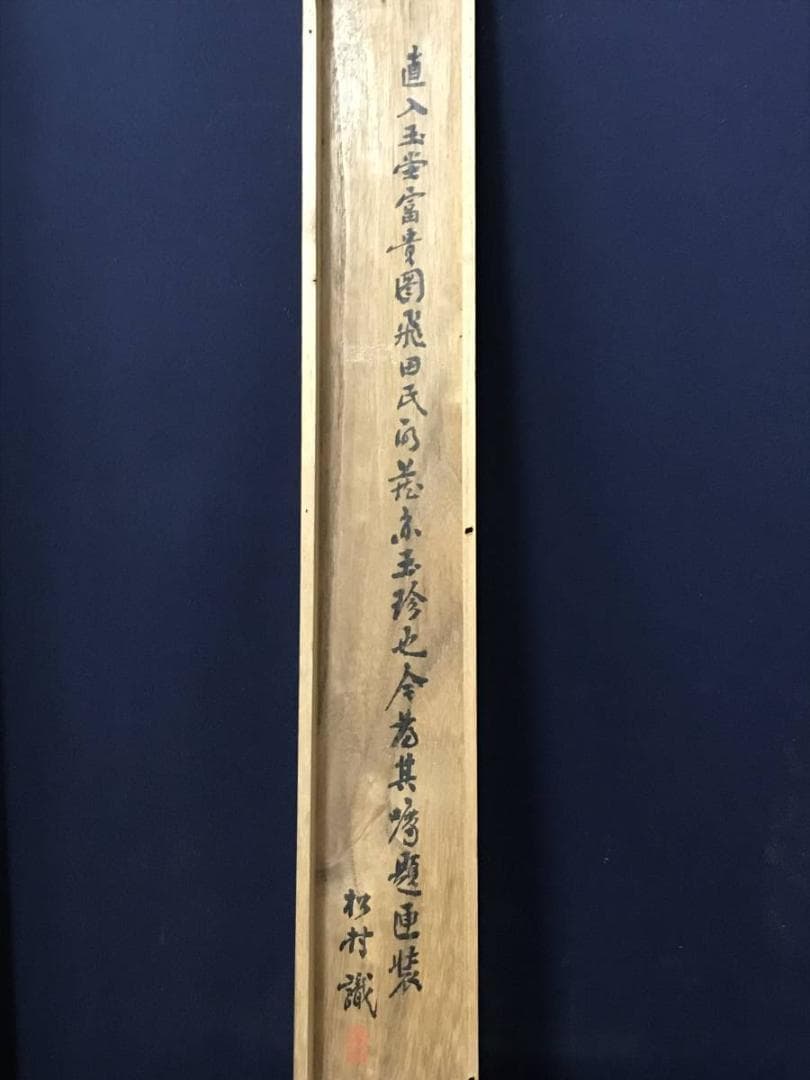 直入玉堂富貴図飛田氏所蔵亦玉珍也今為其嘱題匣装
松村識